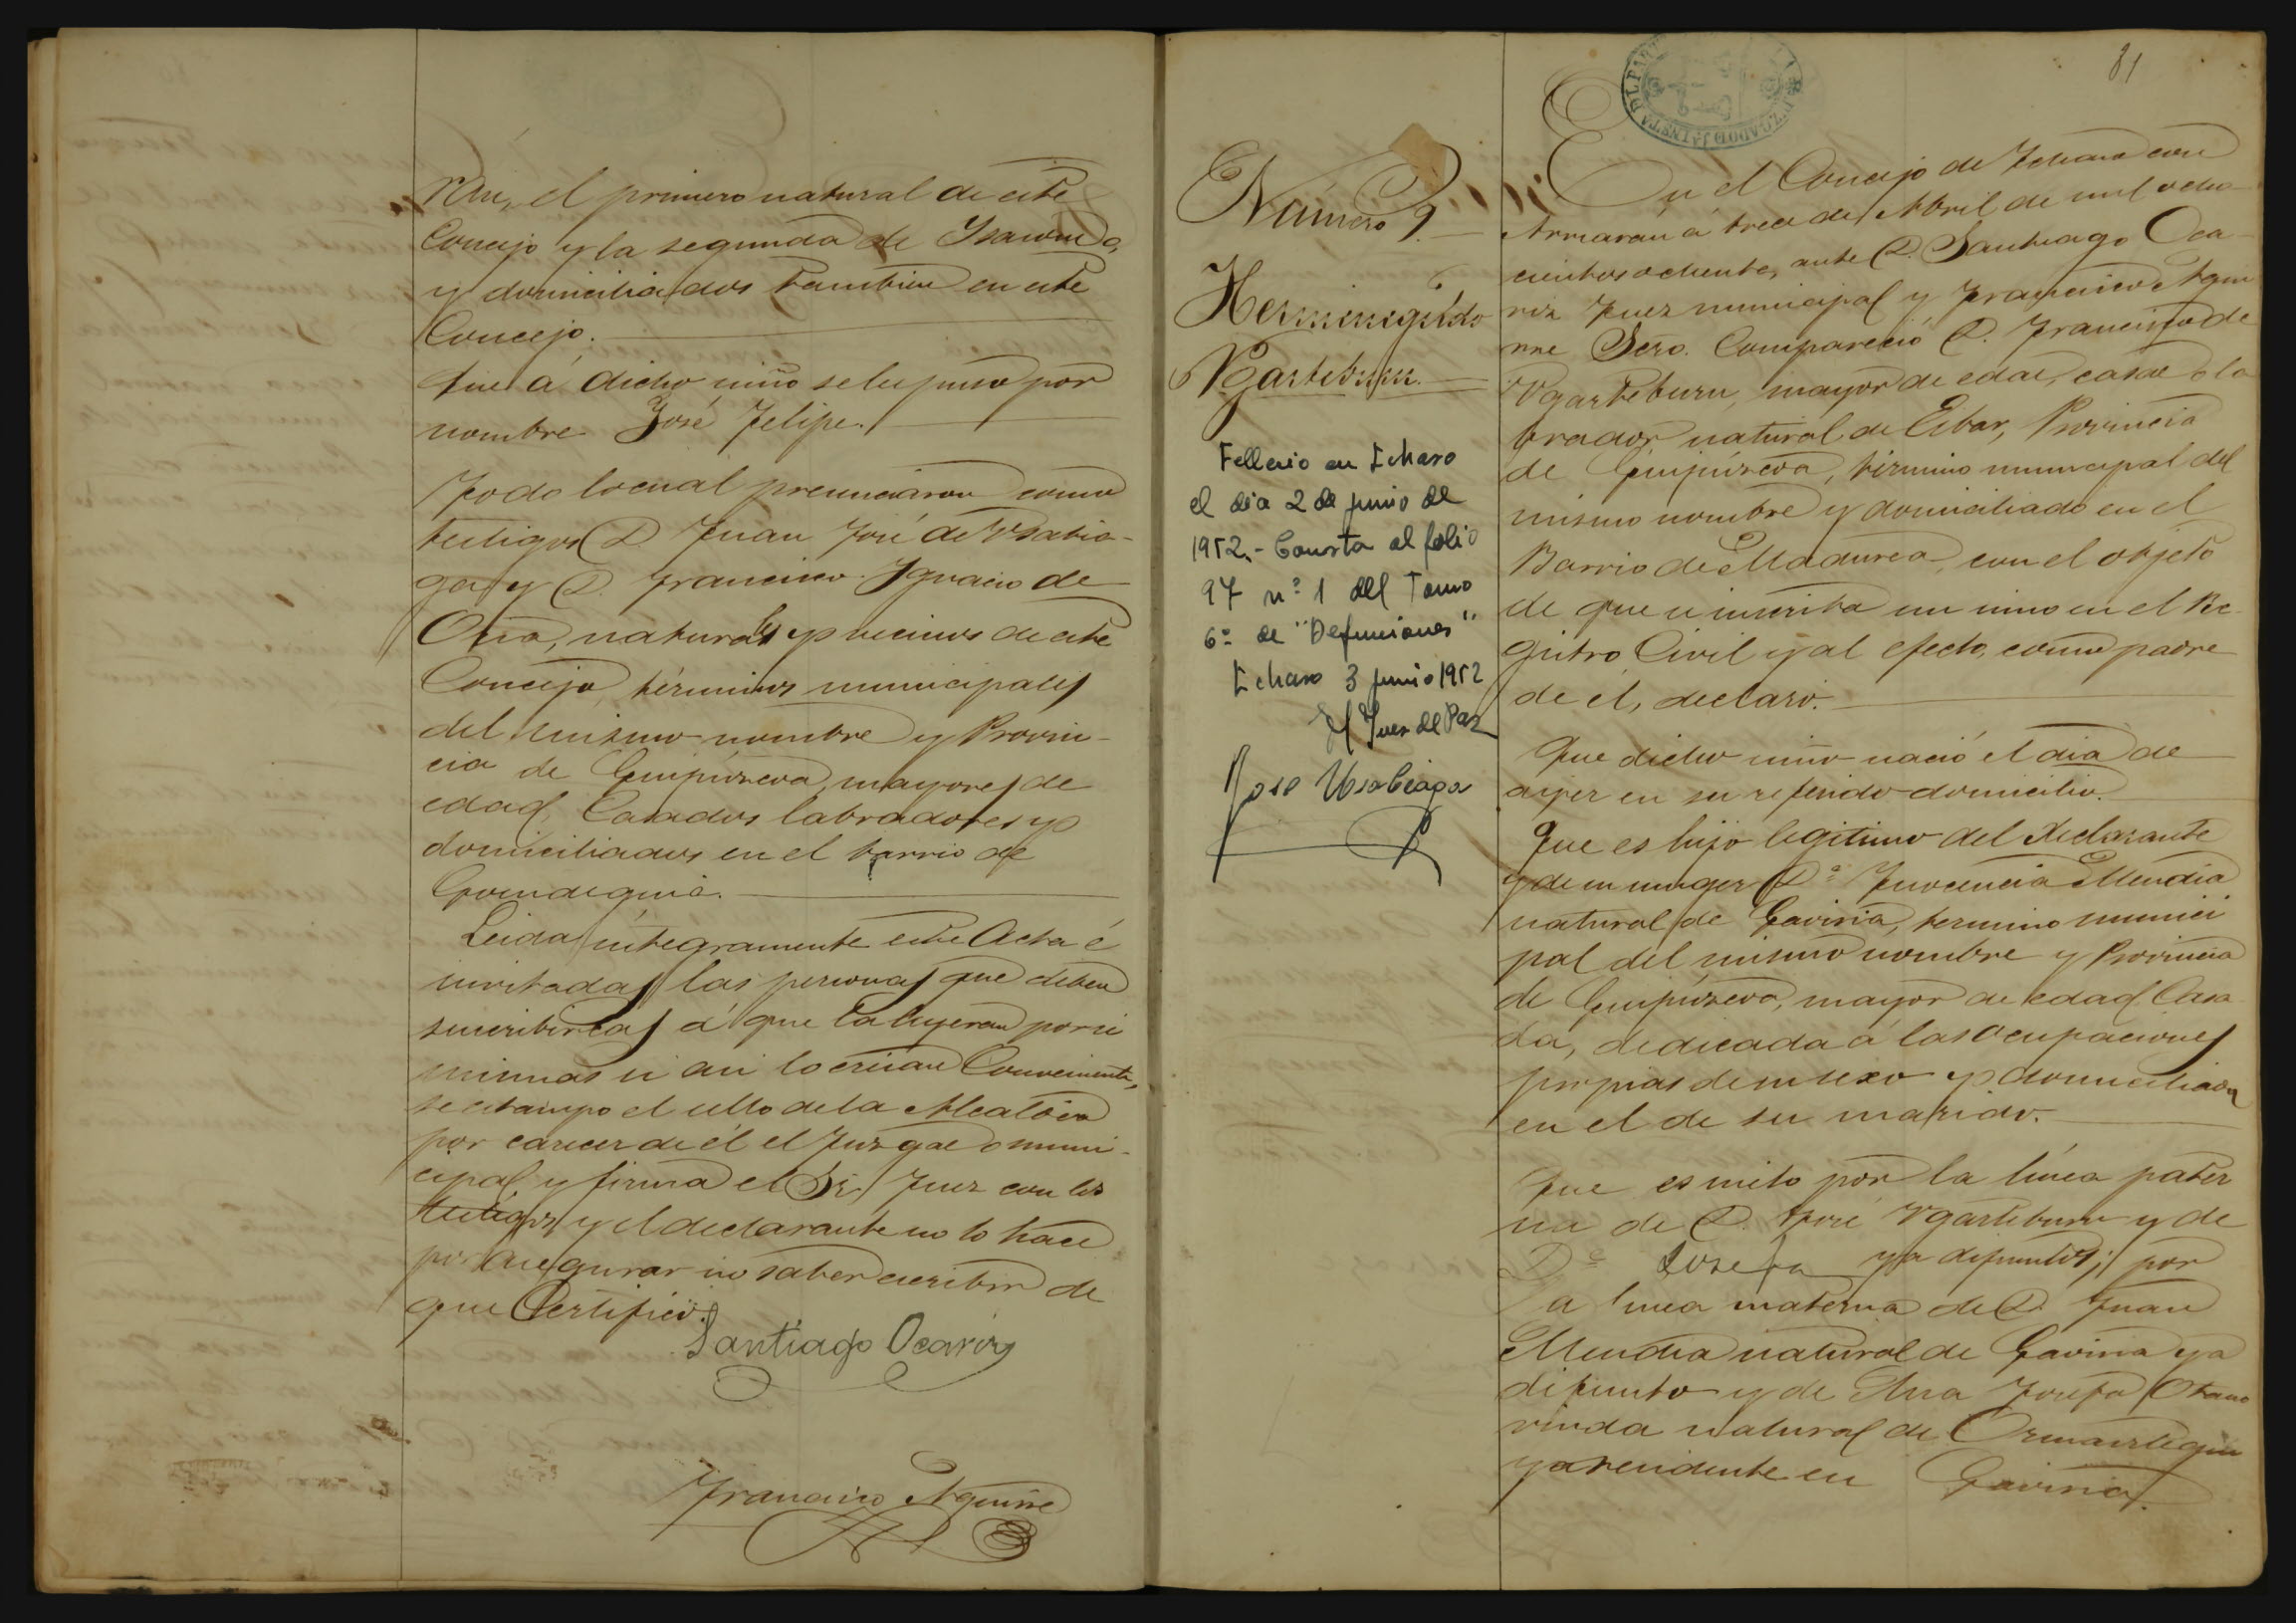 el primero natural de este
Concejo y la segunda de
y domiciliados tambien en este
Concejo.
Que á dicho niño se le puso por
nombre José Felipe.
Todo lo cual presenciaron como
testigos D. Juan José de Usabia-
ga y D. Francisco Ygnacio de
Oria, naturales y vecinos de este
Concejo, términos municipales
del mismo nombre y Provin-
cia de Guipúzcoa, mayores de
edad, Casados labradores y
domiciliados en el barrio de
Goindegui.
Leida íntegramente este Acta é
invitadas las personas que deben
suscribirlas á que la leyeran por si
mismas si asi lo creian Conveniente,
se estampo el sello de la Alcaldia
por carecer de él el Juzgado muni-
cipal, y firma el Sr. Juez con los
testigos y el declarante no lo hace
por asegurar no saber escribir de
que Certifico.
Santiago Ocariz
Francisco Aguirre
81
Número 9.
Hermenegildo
Ygarteburu.
Fellecio en Ichaso
el dia 2 de junio de
1952.- Consta al folio
97 nº 1 del Tomo
6º de "Defunciones"
Ichaso 3 junio 1952
El Juez de Paz
Jose Usabiaga
En el Concejo de Ichaso con
Arriaran á trece de Abril de mil ocho-
cientos ochenta, ante D. Santiago Oca-
riz Juez municipal y Francisco Agui
rre Secro. Compareció D. Francisco de
Ygarteburu, mayor de edad, casado la
brador natural de Eibar, Provincia
de Guipúzcoa, término municipal del
mismo nombre y domiciliado en el
Barrio de Madurea, con el objeto
de que se inscriba un niño en el Re-
gistro Civil y al efecto, como padre
de él, declaró.
Que dicho niño nació el dia de
ayer en su referido domicilio.
Que es hijo legitimo del declarante
y de su muger Dª Ynocencia Mendia
natural de Gaviria, termino munici
pal del mismo nombre y Provincia
de Guipúzcoa, mayor de edad, Casa
da, dedicada á las Ocupaciones
propias de su sexo y domiciliada
en el de su marido.
Que es nieto por la línea pater
na de D. José Ygarteburu y de
Dª Josefa ya difuntos; por
la linea materna de D. Juan
Mendia natural de Gaviria ya
difunto y de Ana Josefa Otano
viuda natural de Ormaiztegui
y residente en Gaviria.